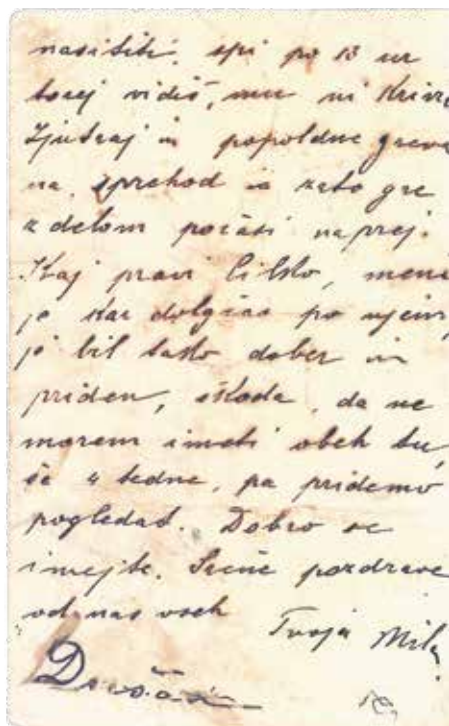 nasititi, spi po 13 ur
torej vidiš, mu ni
Zjutraj in popoldne greva
na sprehod in zato gre
z delom počasi naprej.
Kaj pravi meni
je kar dolgčas po njem,
je bil tako dober in
priden, škoda, da ne
morem imeti obeh tu,
še 4 tedne, pa pridemo
pogledat. Dobro se
imejte. Srčne pozdrave
od nas vseh
Tvoja Mila